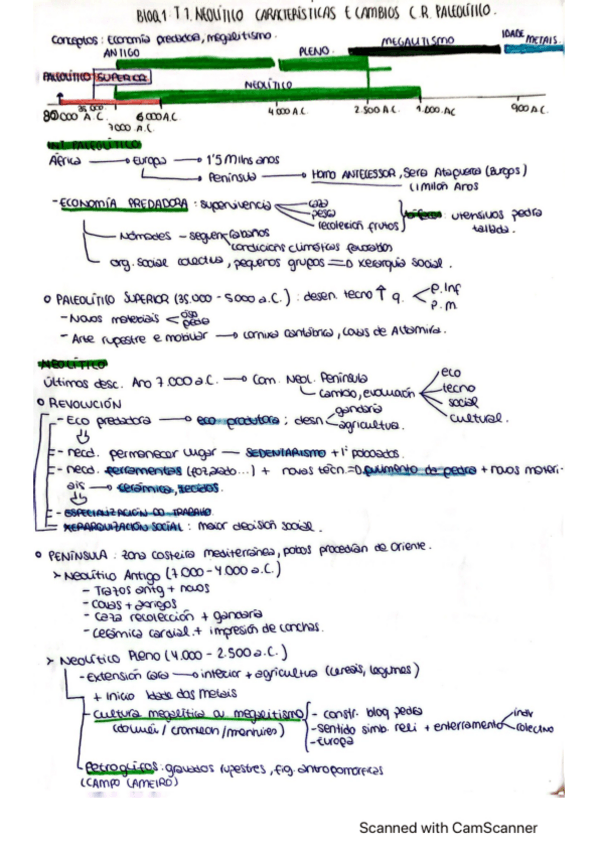 BLOQ.1: T.1. NEOLÍTICO CARACTERÍSTICAS E CAMBIOS C.R. PALEOLÍTICO.
Conceptos: Economía predadora, megalitismo.
ANTIGO PLENO MEGALITISMO IDADE METAIS
PALEOLÍTICO SUPERIOR NEOLÍTICO
35.000
6000 A.C. 4.000 A.C. 2.500 A.C. 1.000 A.C 900 A.C.
7000 A.C.
INT. PALEOLÍTICO
África → Europa → 1'5 Mills anos
→ Península → Homo ANTECESSOR, Serra Atapuerca (Burgos)
(1 millón Anos
- ECONOMÍA PREDADORA: supervivencia caza
pesca
recolección frutos
utensivos pedra tallada.
Nómades - seguen rabaños
condicións climáticas favorables
org. social colectiva, pequenos grupos =D xerarquía social.
o PALEOLÍTICO SUPERIOR (35.000 - 5000 a.C.): desen. tecno ↑ q. P. Inf
P. M.
- Novos materiais óso
pedra
- Arte rupestre e mobiliar → cornixa cantábrica, covas de Altamira.
NEOLÍTICO
Últimos desc. Ano 7.000 a.C. → Com. Neol. Península
cambio, evolución eco
tecno
social
cultural.
o REVOLUCIÓN
- Eco predadora → eco produtora; desn gandaría
agricultura.
- necd. permanecer lugar — SEDENTARISMO + 1º poboados.
- necd. ferramentas (fozado...) + novas técn. =D pulimento da pedra + novos materi-
ais → cerámica, tecidos.
- ESPECIALIZACIÓN DO TRABALLO
- XERARQUIZACIÓN SOCIAL: maior decisión social.
o PENÍNSULA: zona costeira mediterránea, pobos procedían de Oriente.
> Neolítico Antigo (7.000 - 4.000 a.C.)
- Trazos antg + novos
- Covas + abrigos
- Caza recolección + gandaría
- Cerámica cardial + impresión de conchas.
> Neolítico Pleno (4.000 - 2.500 a.C.)
- Extensión cara → interior + agricultura (cereais, legumes)
+ Inicio Idade dos Metais
- Cultura megalítica ou megalitismo - constr. bloq pedra
(dolmen / cromlech / menhires) - sentido simb. reli + enterramento indv
colectivo
- Europa
Petroglifos: gravados rupestres, fig. antropomorfas
(CAMPO LAMEIRO)
Scanned with CamScanner